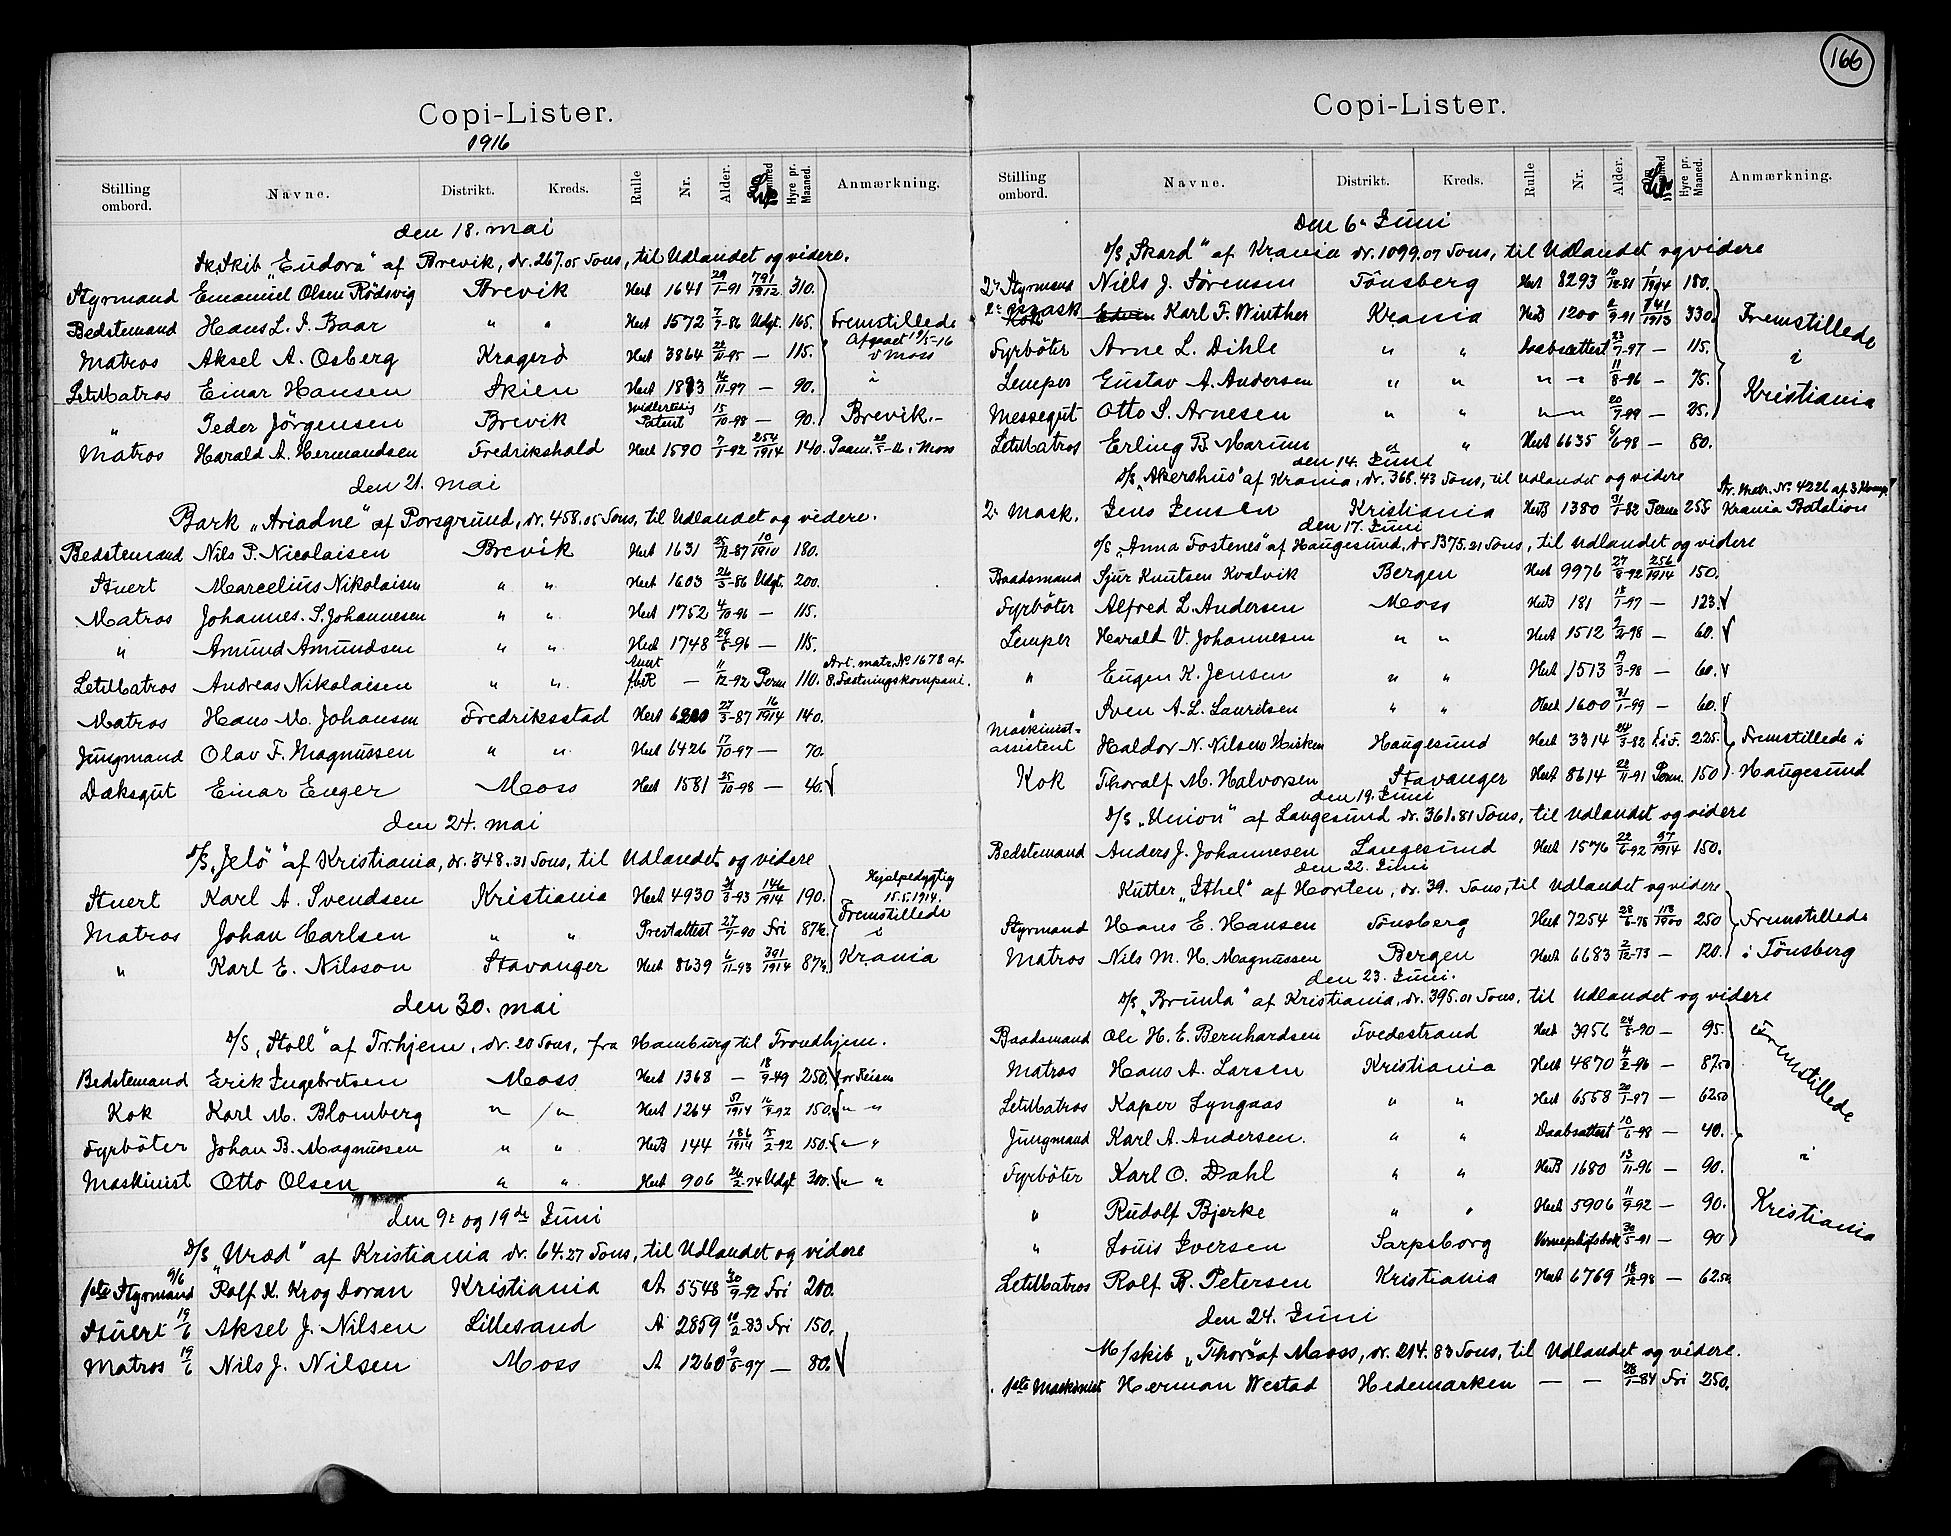 166
Copi-Lister.
1916
Stilling ombord. Navne. Distrikt. Kreds. Rulle Nr. Alder. Hyre pr. Maaned. Anmærkning.
den 18. mai
Sk.Skib "Eudora" af Brevik, dr. 267.05 Tons, til Udlandet og videre.
Styrmand Emanuel Olsen Rödsvig Brevik Hert 1641 29/1-91 791/1312 310.
Bedstemand Hans L. I. Baar " " Hert 1572 7/7-86 Udgt. 165. Fremstillede
Afgaaet 19/5-16
Matros Aksel A. Osberg Kragerö Hert 3864 -95 — 115. v Moss
LetMatros Einar Hansen Skien Hert 1883 16/11-97 — 90. i
" Peder Jörgensen Brevik Midlertidig Patent 15/10-98 — 90. Brevik.-
Matros Harald A. Hermandsen Fredrikshald Hert 1590 7/1-92 254/1914 140. i Moss
den 21. mai
Bark "Ariadne" af Porsgrund, dr. 458.05 Tons, til Udlandet og videre.
Bedstemand Nils P. Nicolaisen Brevik Hert 1631 25/12-87 10/1910 180.
Stuert Marcelius Nikolaisen " " Hert 1603 26/3-86 Udgt. 200.
Matros Johannes. S. Johannesen " " Hert 1752 4/10-96 — 115.
" Amund Amundsen " " Hert 1748 29/6-96 — 115.
LetMatros Andreas Nikolaisen " " — 11/12-92 Perm 110. Art. matr. No 1678 af
8. Fæstningskompani.
Matros Hans M. Johansen Fredriksstad Hert 27/3-87 16/1914 140.
Jungmand Olav F. Magnussen " " Hert 6426 17/10-97 — 70.
Dæksgut Einar Enger Moss Hert 1581 25/10-98 — 40.
den 24. mai
D/S "Jelö" af Kristiania, dr. 348.31 Tons, til Udlandet og videre
Hjælpedygtig
Stuert Karl A. Svendsen Kristiania Hert 4930 -93 146/1914 190. 15.5.1914.
Matros Johan Carlsen " " Prestattest 27/7-90 Fri 87½. Fremstillede i
" Karl E. Nilsson Stavanger Hert 8639 6/11-93 391/1914 87½ Krania
den 30. mai
D/S "Stoll" af Trhjem, dr. 20 Tons, fra Hamburg til Trondhjem.
Bedstemand Erik Ingebretsen Moss Hert 1368 — 18/9-49 250. for Reisen
Kok Karl M. Blomberg " " Hert 1264 57/1914 16/9-92 150. " "
Fyrböter Johan B. Magnussen " " HertB 144 186/1914 15/2-92 150. " "
Maskinist Otto Olsen " " Hert 906 26/2-74 Udgt 300. " "
den 9e og 19de Juni
D/S "Uræd" af Kristiania dr. 64.27 Tons, til Udlandet og videre
9/6
1ste Styrmand Rolf K. Krog Doran Kristiania A 5548 30/9-92 Fri 200.
Stuert 19/6 Aksel J. Nilsen Lillesand A 2859 10/2-83 Fri 150.
Matros 19/6 Nils J. Nilsen Moss A 1260 9/8-97 — 80.
Copi-Lister.
Stilling ombord. Navne. Distrikt. Kreds. Rulle Nr. Alder. Hyre pr. Maaned. Anmærkning.
Den 6. Juni
D/S "Skard" af Krania dr. 1099.07 Tons, til Udlandet og videre
2. Styrmand Niels J. Sörensen Tönsberg Hert 8293 10/12-81 180.
2. Mask Karl F. Winther Krania HertB 1200 2/9-91 330. Fremstillede
Fyrböter Arne L. Dihle " " Daabsattest 23/7-97 — 115. i
Lemper Gustav A. Andersen " " " — " 11/8-96 — 75. Kristiania
Messegut Otto S. Arnesen " " " — " 20/7-99 — 25.
LetMatros Erling B. Marum " " Hert 6635 5/6-98 — 80.
den 14. Juni
D/S "Akershus" af Krania, dr. 368.43 Tons, til Udlandet og videre
Matr. No 4226 af 3 Komp.
2. Mask. Jens Jensen Kristiania HertB 1380 31/1-82 Perm 255. Krania Batalion
den 17. Juni
D/S "Anna Fostenes" af Haugesund, dr 1375.21 Tons, til Udlandet og videre
Baadsmand Sjur Knutsen Kvalvik Bergen Hert 9976 27/8-92 256/1914 150.
Fyrböter Alfred L. Andersen Moss HertB 181 18/1-97 — 123.
Lemper Harald V. Johannesen " " Hert 1512 9/12-98 — 60.
" Eugen K. Jensen " " Hert 1513 19/3-98 — 60.
" Sven A. L. Lauritsen " " Hert 1600 31/1-99 — 60.
Maskinist-
assistent Haldor N. Nilsen Haugesund Hert 3314 24/3-82 225. Fremstillede i
Kok Thoralf M. Halvorsen Stavanger Hert 8614 28/11-91 Perm. 150 Haugesund
den 19. Juni
D/S "Union" af Langesund dr. 361.81 Tons, til Udlandet og videre
Bedstemand Anders J. Johannesen Langesund Hert 1576 22/6-92 57/1914 150.
den 22. Juni
Kutter "Ethel" af Horten, dr. 39. Tons, til Udlandet og videre
Styrmand Hans E. Hansen Tönsberg Hert 7254 28/6-78 118/1900 250 Fremstillede
Matros Nils M. H. Magnussen Bergen Hert 6683 2/12-73 — 120. i Tönsberg
den 23. Juni.
D/S "Brunla" af Kristiania, dr. 395.01 Tons, til Udlandet og videre
Baadsmand Ole H. E. Bernhardsen Tvedestrand Hert 3956 24/8-90 — 95. Fremstillede
Matros Hans A. Larsen Kristiania Hert 4870 4/2-96 — 87.50
LetMatros Kaper Lyngaas " " Hert 6558 20/1-97 — 62.50
Jungmand Karl A. Andersen. " " Daabsattest 10/6-98 — 40.
Fyrböter Karl O. Dahl " " HertB 1680 13/11-96 — 90. i
" Rudolf Bjerke " " Hert 5906 11/9-92 — 90. Kristiania
" Louis Iversen Sarpsborg Vernepligtsbok 30/5-91 — 90
LetMatros Rolf B. Petersen Kristiania Hert 6769 18/12-98 — 62.50
den 24. Juni
M/skib "Thor" af Moss, dr. 214.83 Tons, til Udlandet og videre.
1ste Maskinist Herman Westad Hedemarken — — 28/1-84 Fri 250.